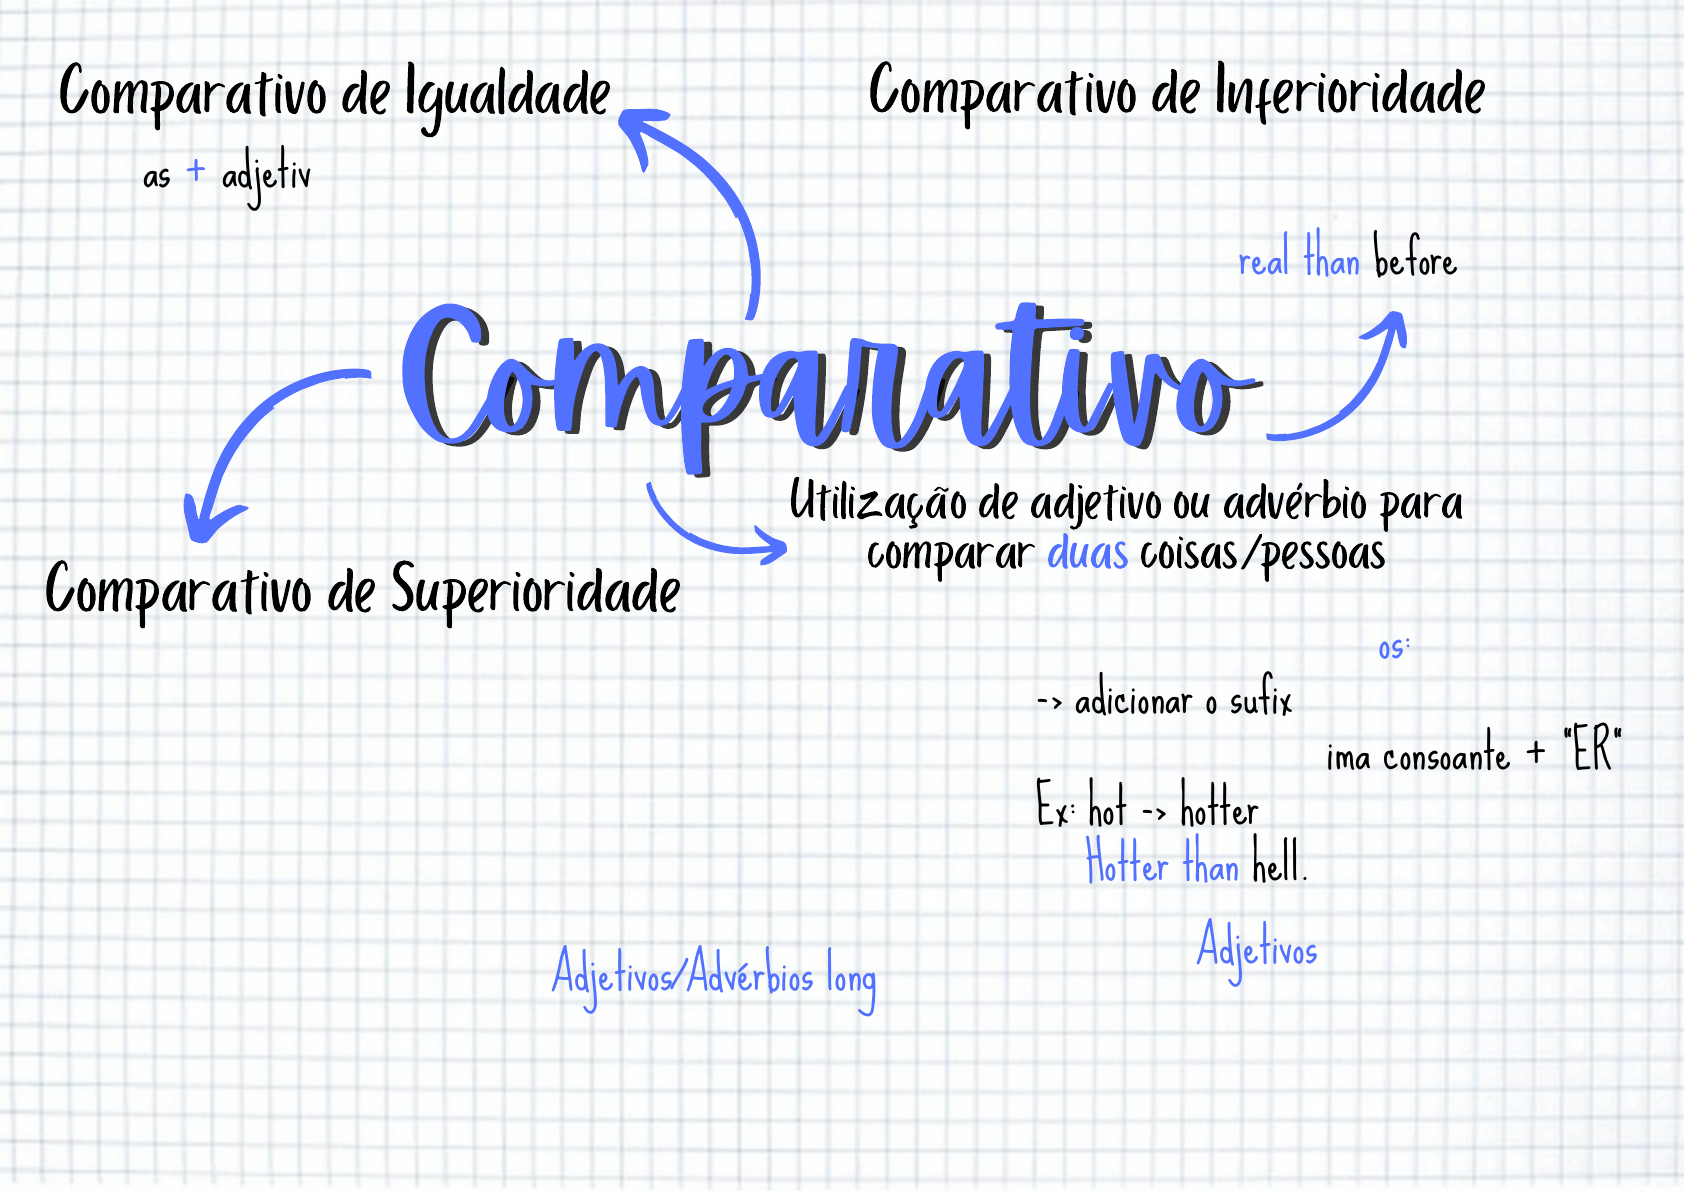 Comparativo de Igualdade
as + adjetiv
Comparativo de Inferioridade
real than before
Comparativo
Utilização de adjetivo ou advérbio para
comparar duas coisas/pessoas
Comparativo de Superioridade
os:
-> adicionar o sufix
ima consoante + "ER"
Ex: hot -> hotter
Hotter than hell.
Adjetivos
Adjetivos/Advérbios long